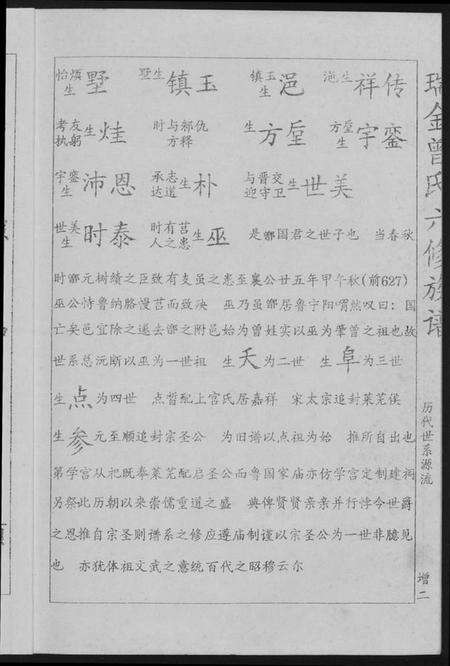 怡烦生墅 墅生镇玉 镇玉生浥 浥生祥传
考友执躬生烓 时与郗仇方释生方垕 方垕生宇銮
宇銮生沛恩 承志达道生朴 与晋交迎守卫生世美
世美生时泰 时有莒人之患生巫 是鄫国君之世子也 当春秋
时鄫元树绩之臣致有支虽之患至襄公廿五年甲午秋(前627)
巫公恃鲁纳赂慢莒而致泱 巫乃虽鄫居鲁宁阳喟然叹曰：国
亡矣邑宜除之遂去鄫之附邑始为曾姓实以巫为肇曾之祖也故
世系总沅断以巫为一世祖 生夭为二世 生阜为三世
生点为四世 点晳配上宫氏居嘉祥 宋太宗追封莱芜侯
生参元至顺追封宗圣公 为旧谱以点祖为始 推所自出也
第学宫从祀既奉莱芜配启圣公而鲁国家庙亦仿学宫定制建祠
另祭此历朝以来崇儒重道之盛 典俾贤贤亲亲并行悖今世爵
之恩推自宗圣则谱系之修应遵庙制谨以宗圣公为一世非臆见
也 亦犹体祖文武之意统百代之昭穆云尔
瑞金曾氏六修族谱
历代世系源流
增二